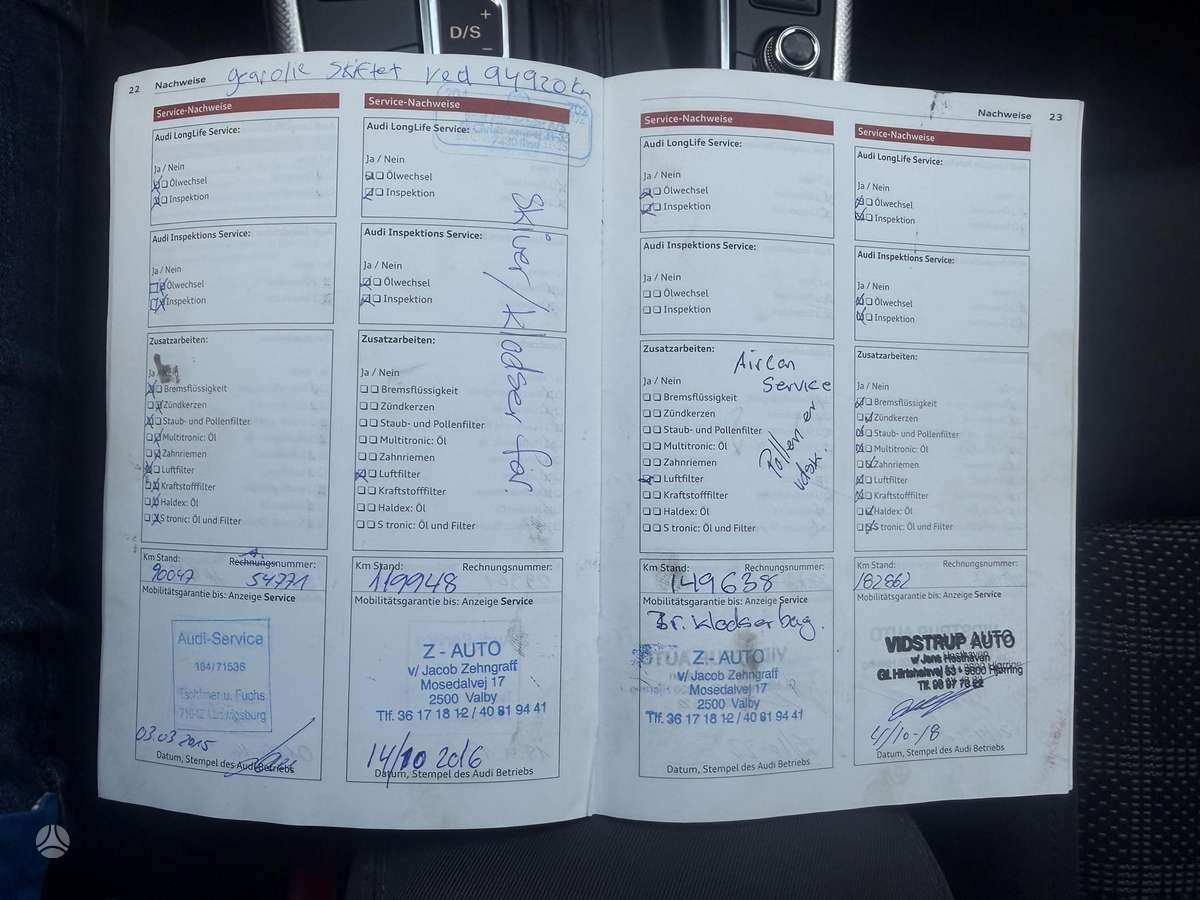 D/S
22 Nachweise
gearolie skiftet ved 94920 km
Service-Nachweise
Audi LongLife Service:
Ja / Nein
Ölwechsel
Inspektion
Audi Inspektions Service:
Ja / Nein
Ölwechsel
Inspektion
Zusatzarbeiten:
Ja
Bremsflüssigkeit
Zündkerzen
Staub- und Pollenfilter
Multitronic: Öl
Zahnriemen
Luftfilter
Kraftstofffilter
Haldex: Öl
S tronic: Öl und Filter
Km Stand: Rechnungsnummer:
90047 54771
Mobilitätsgarantie bis: Anzeige Service
Audi-Service
184/71536
03.03.2015
Datum, Stempel des Audi Betriebs
Service-Nachweise
Audi LongLife Service:
Ja / Nein
Ölwechsel
Inspektion
Audi Inspektions Service:
Ja / Nein
Ölwechsel
Inspektion
Skiver/klodser før.
Zusatzarbeiten:
Ja / Nein
Bremsflüssigkeit
Zündkerzen
Staub- und Pollenfilter
Multitronic: Öl
Zahnriemen
Luftfilter
Kraftstofffilter
Haldex: Öl
S tronic: Öl und Filter
Km Stand: Rechnungsnummer:
119948
Mobilitätsgarantie bis: Anzeige Service
Z - AUTO
v/ Jacob Zehngraff
Mosedalvej 17
2500 Valby
Tlf. 36 17 18 12 / 40 81 94 41
14/10 2016
Datum, Stempel des Audi Betriebs
Nachweise 23
Service-Nachweise
Audi LongLife Service:
Ja / Nein
Ölwechsel
Inspektion
Audi Inspektions Service:
Ja / Nein
Ölwechsel
Inspektion
Zusatzarbeiten:
Aircon
Service
Pollen er
Ja / Nein
Bremsflüssigkeit
Zündkerzen
Staub- und Pollenfilter
Multitronic: Öl
Zahnriemen
Luftfilter
Kraftstofffilter
Haldex: Öl
S tronic: Öl und Filter
Km Stand: Rechnungsnummer:
149638
Mobilitätsgarantie bis: Anzeige Service
Br. klodser bag.
Z - AUTO
v/ Jacob Zehngraff
Mosedalvej 17
2500 Valby
Tlf. 36 17 18 12 / 40 81 94 41
Datum, Stempel des Audi Betriebs
Service-Nachweise
Audi LongLife Service:
Ja / Nein
Ölwechsel
Inspektion
Audi Inspektions Service:
Ja / Nein
Ölwechsel
Inspektion
Zusatzarbeiten:
Ja / Nein
Bremsflüssigkeit
Zündkerzen
Staub- und Pollenfilter
Multitronic: Öl
Zahnriemen
Luftfilter
Kraftstofffilter
Haldex: Öl
S tronic: Öl und Filter
Km Stand: Rechnungsnummer:
182862
Mobilitätsgarantie bis: Anzeige Service
VIDSTRUP AUTO
v/ Jens
Gl. Hirtshalsvej 9800 Hjørring
Tlf. 98 97
4/10-18
Datum, Stempel des Audi Betriebs